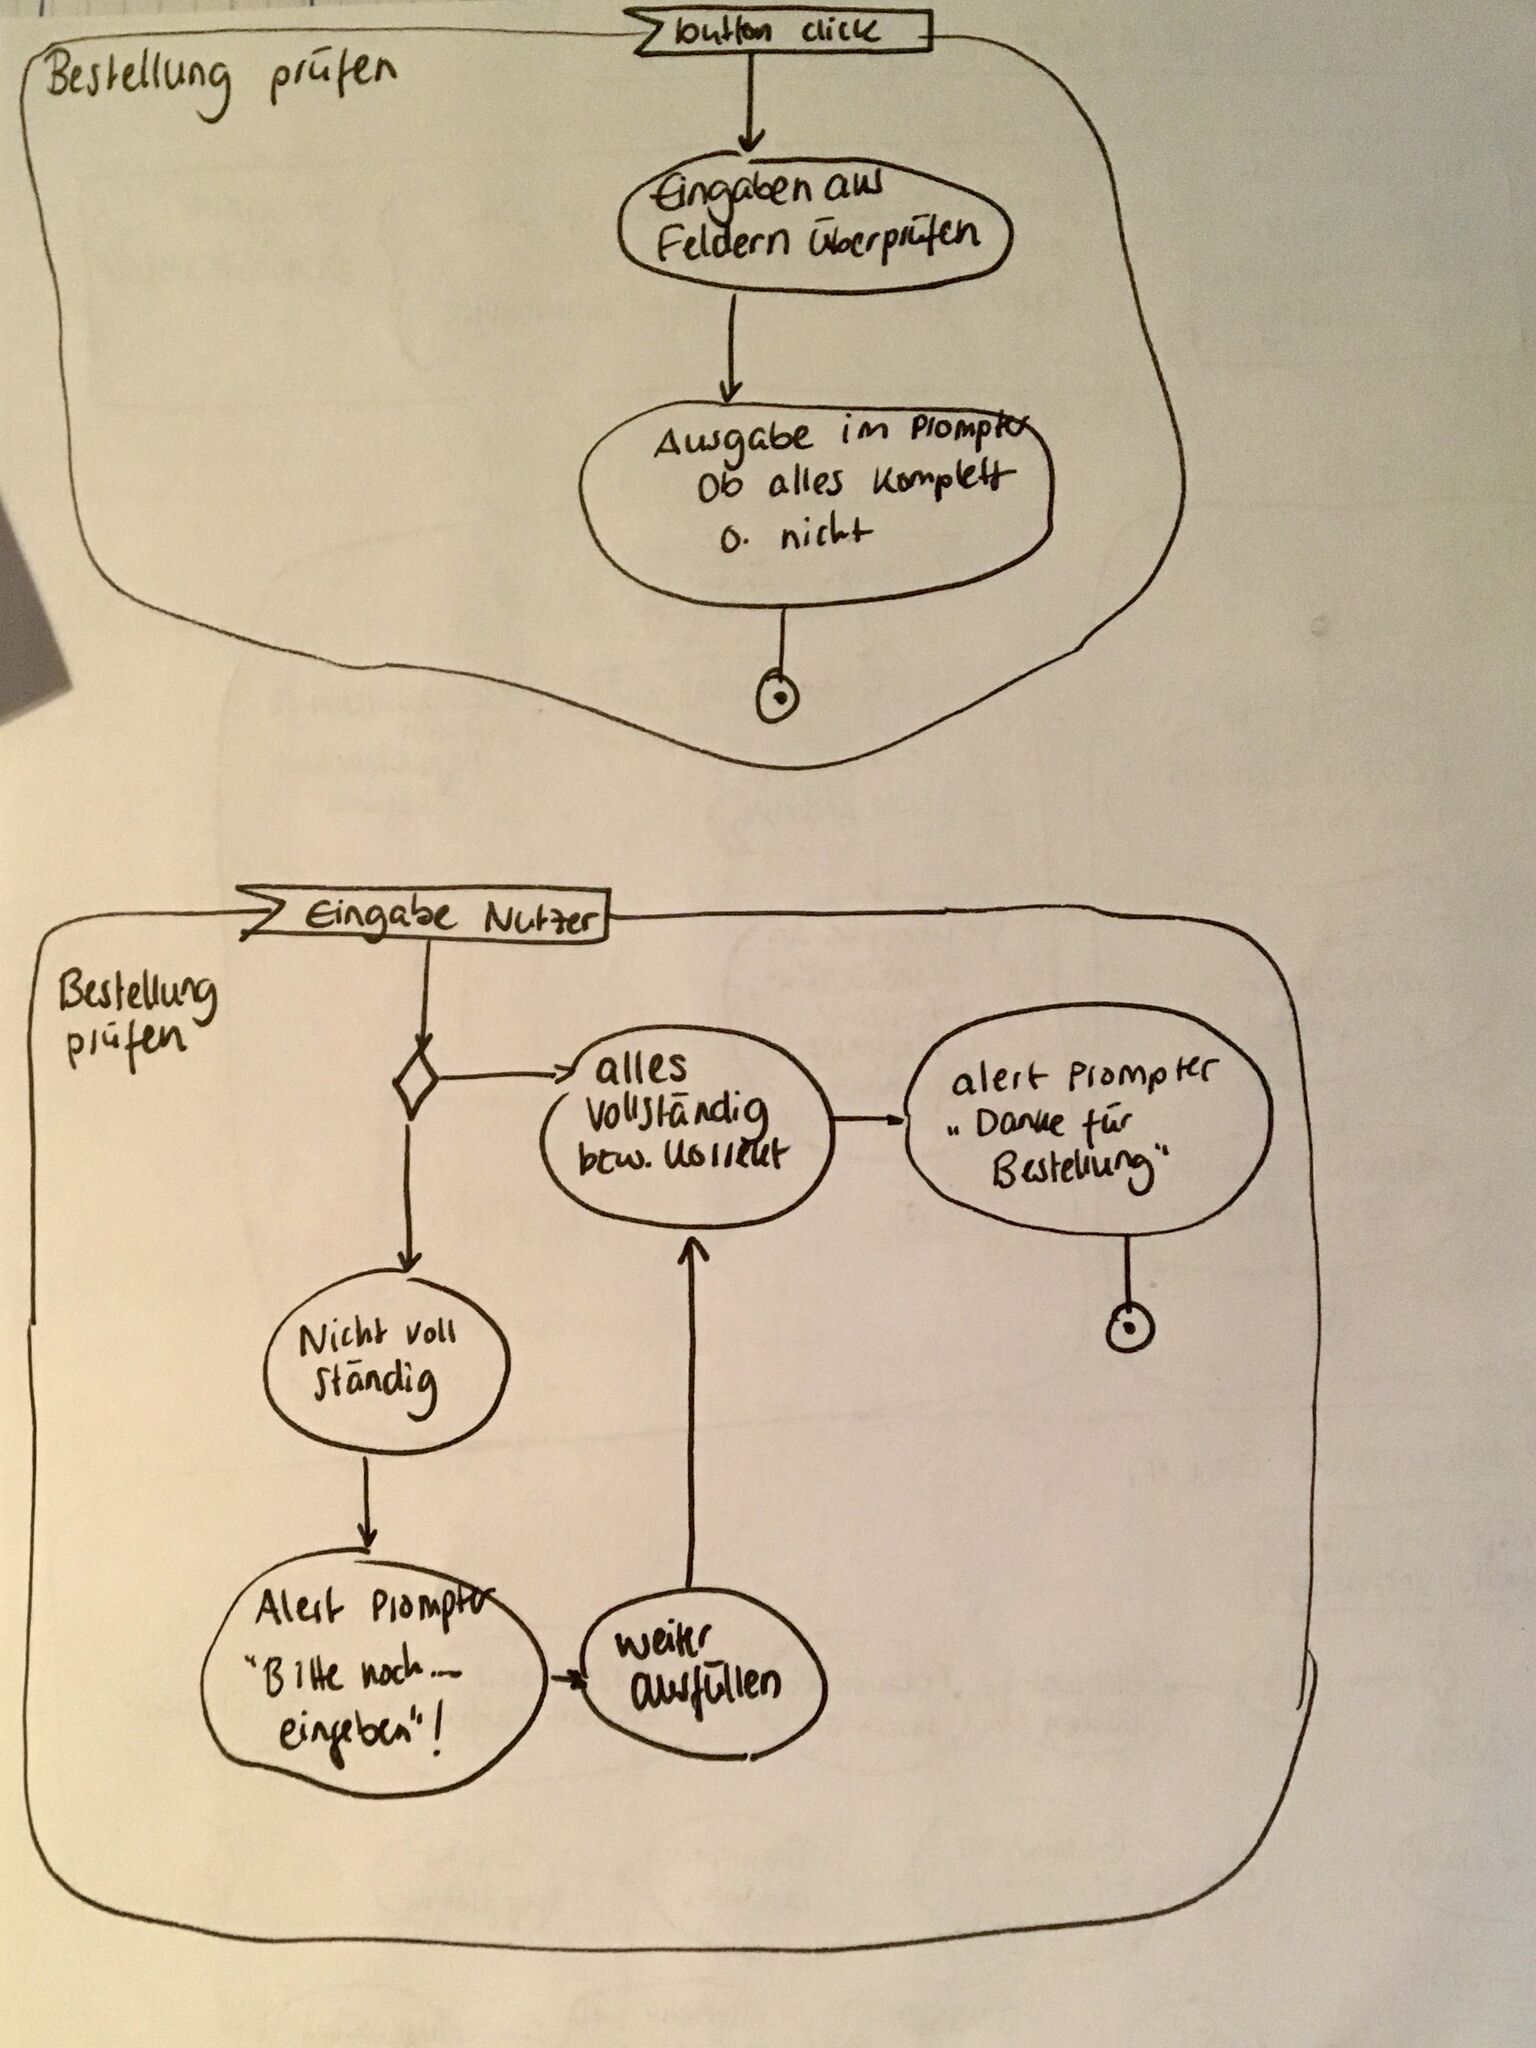 button click
Bestellung prüfen
Eingaben aus
Feldern überprüfen
Ausgabe im Prompter
Ob alles komplett
o. nicht
Eingabe Nutzer
Bestellung
prüfen
alles
vollständig
bzw. korrekt
alert Prompter
„Danke für
Bestellung"
Nicht voll
ständig
Alert Prompter
"Bitte noch...
eingeben"!
weiter
ausfüllen